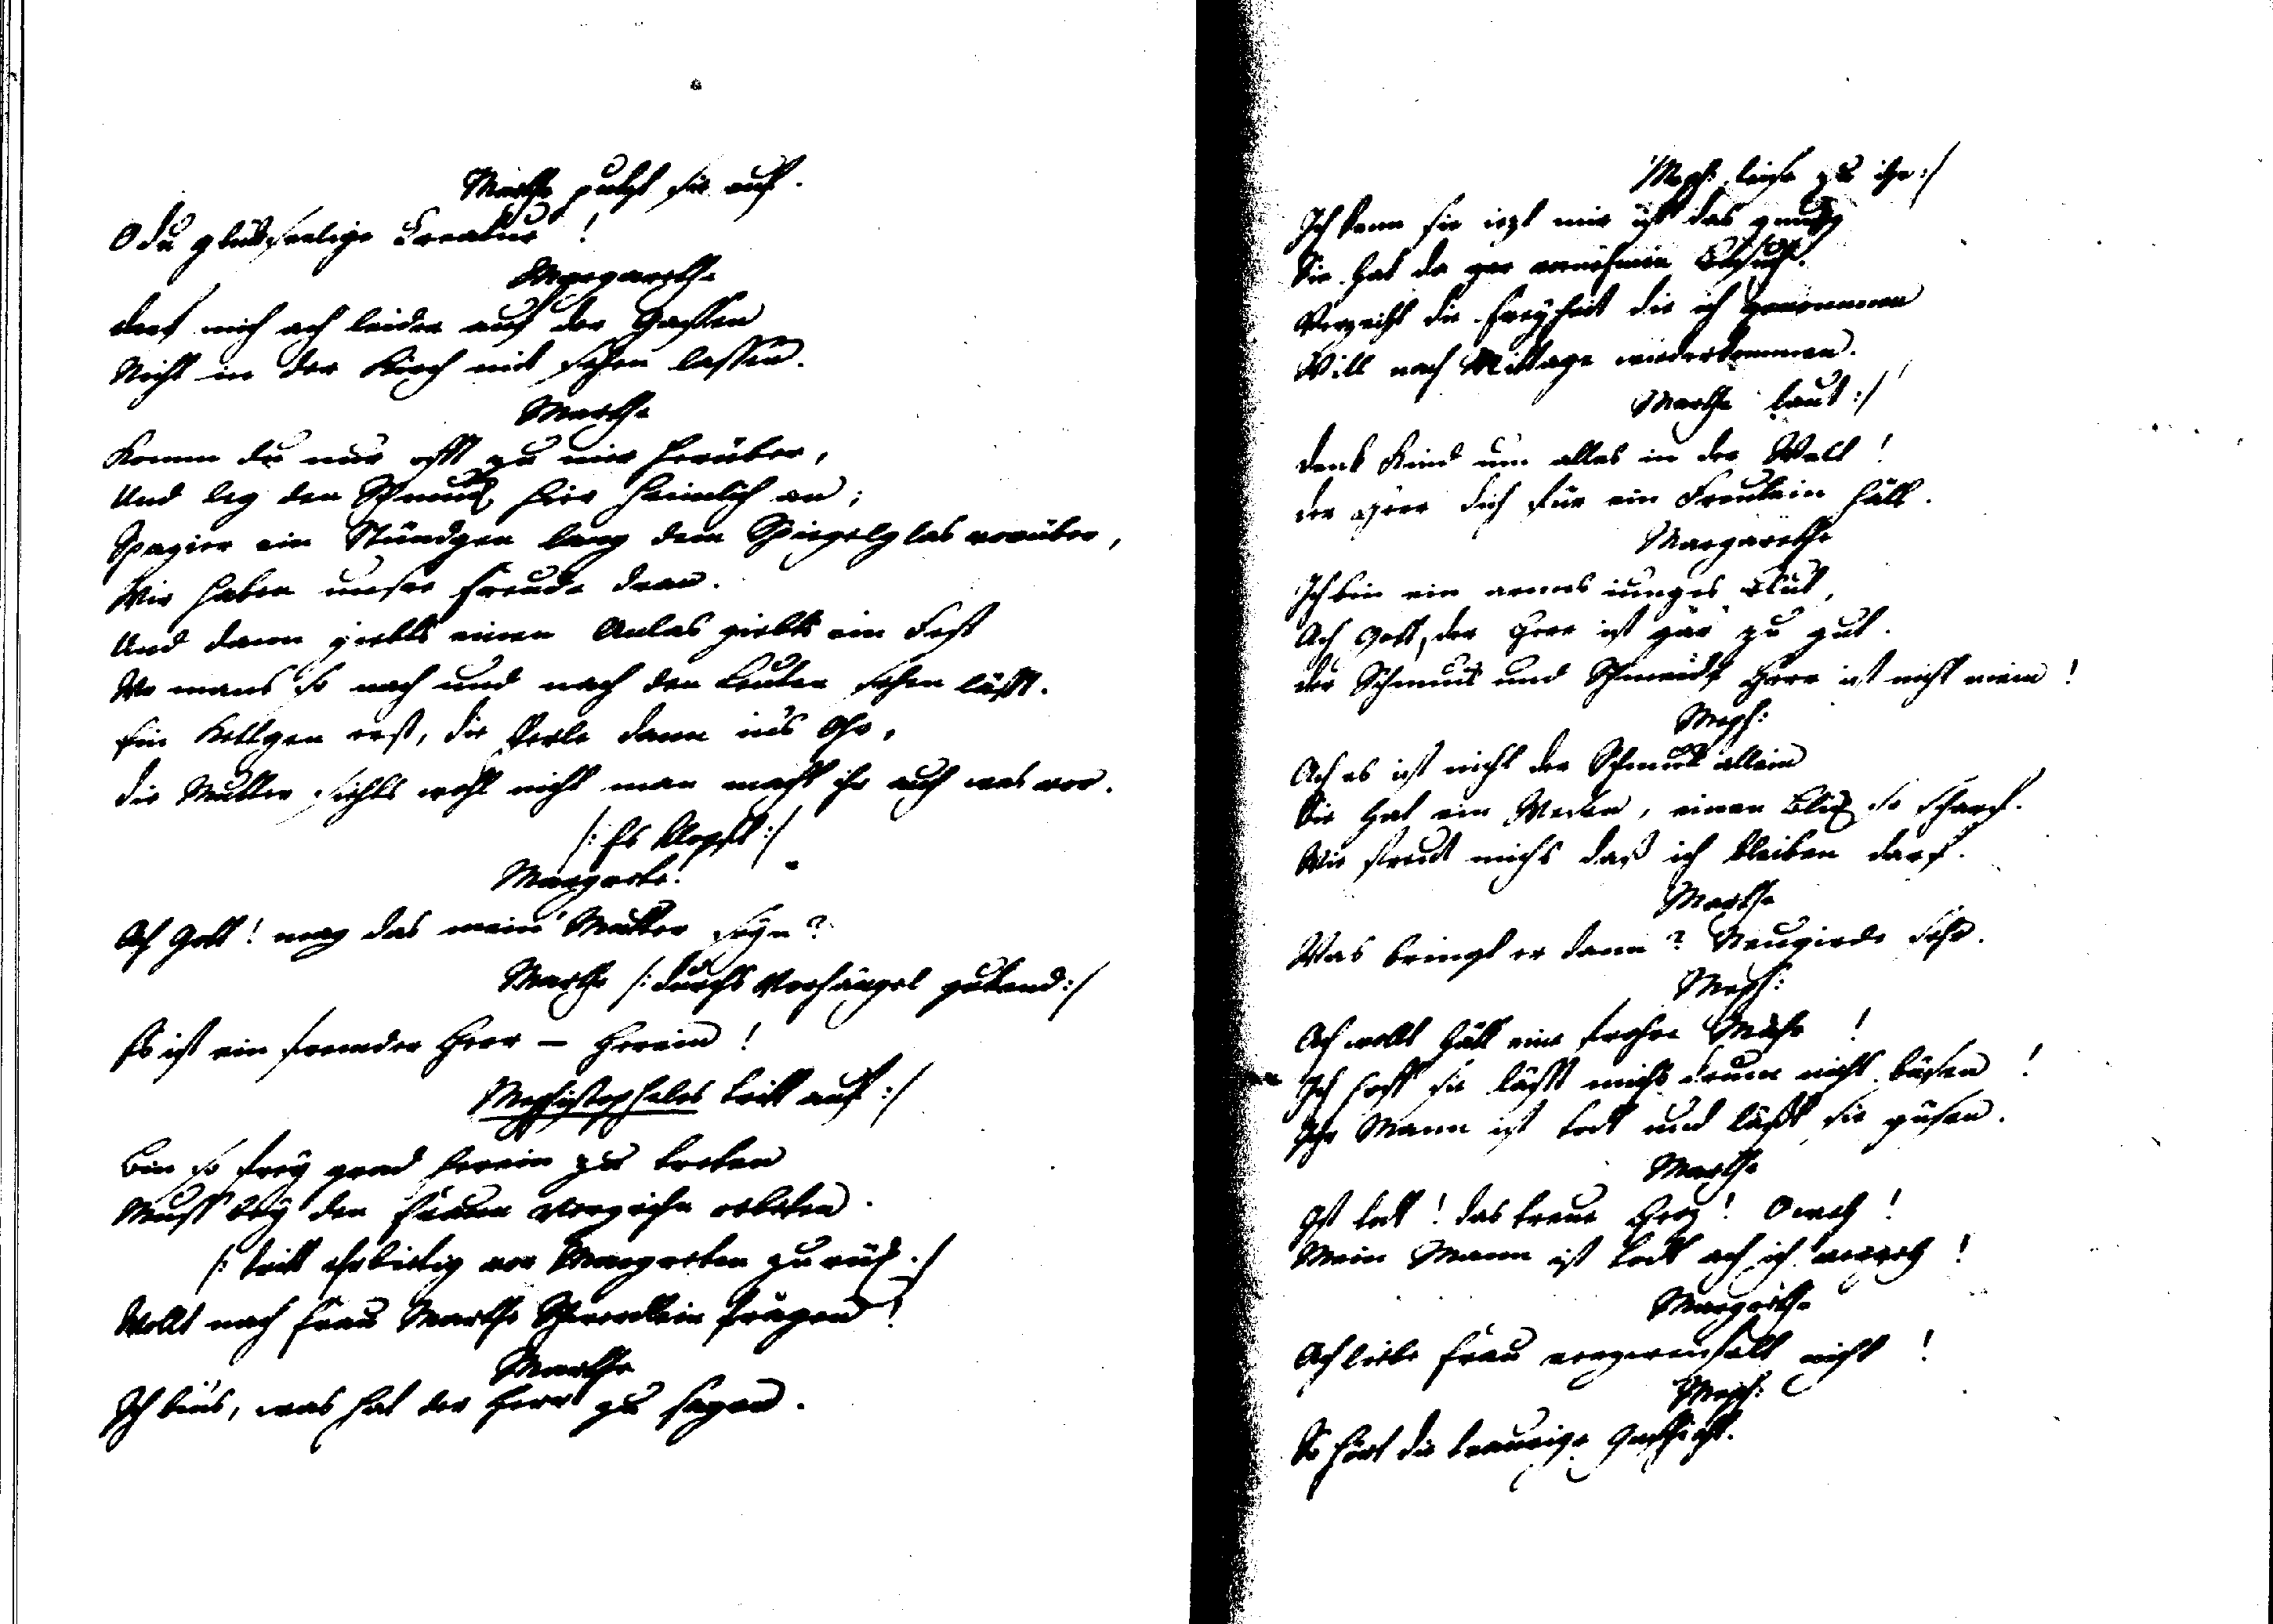 Marthe putzt sie auf.
O du glückseelige Creatur!
Margarethe
Darf mich ach leider auf der Gassen
Nicht in der Kirch mit sehen lassen.
Marthe
Komm du nur offt zu mir herüber,
Und leg den Schmuck hier heimlich an;
Spazier ein Stündgen lang dem Spiegelglas vorüber,
Wir haben unsre Freude dran.
Und dann giebts einen Anlas giebts ein Fest
Wo mans so nach und nach den Leuten sehen lässt.
Ein Kettgen erst, die Perle dann ins Ohr,
Die Mutter siehts wohl nicht man macht ihr auch was vor.
/: Es klopft :/
Margrete.
Ach Gott! mag das mein Mutter seyn?
Marthe /: durchs Vorhängel guckend :/
Es ist ein fremder Herr – Herein!
Mephistopheles tritt auf :/
Bin so frey grad herein zu treten
Muss bey den Frauen Verzeihn erbeten.
/: tritt ehrbietig vor Margreten zurück :/
Wollt nach Frau Marthe Schwerdlein fragen!
Marthe
Ich bins, was hat der Herr zu sagen.
Meph: leise zu ihr :/
Ich kenn sie iezt mir ist das genug
Sie hat da gar vornehmen Besuch.
Verzeiht die Freyheit die ich genommen
Will nach Mittage wiederkommen.
Marthe laut :/
Denk Kind um alles in der Welt!
Der Herr dich für ein Fräulein hält.
Margarethe
Ich bin ein armes iunges Blut,
Ach Gott, der Herr ist gar zu gut.
Der Schmuck und Schmeid Herr ist nicht mein!
Meph:
Ach es ist nicht der Schmuck allein
Sie hat ein Wesen, einen Blick so scharf.
Wie freut michs daß ich bleiben darf.
Marthe
Was bringt er dann? Neugierde sehr.
Meph:
Ach wollt hätt eine frohre Mähr!
Ich hoff sie lässt michs drum nicht büsen!
Ihr Mann ist todt und lässt sie grüsen.
Marthe
Ist todt! das treue Herz! O weh!
Mein Mann ist todt ach ich vergeh!
Margrethe
Ach liebe Frau verzweifelt nicht!
Meph:
So hört die traurige Geschicht.